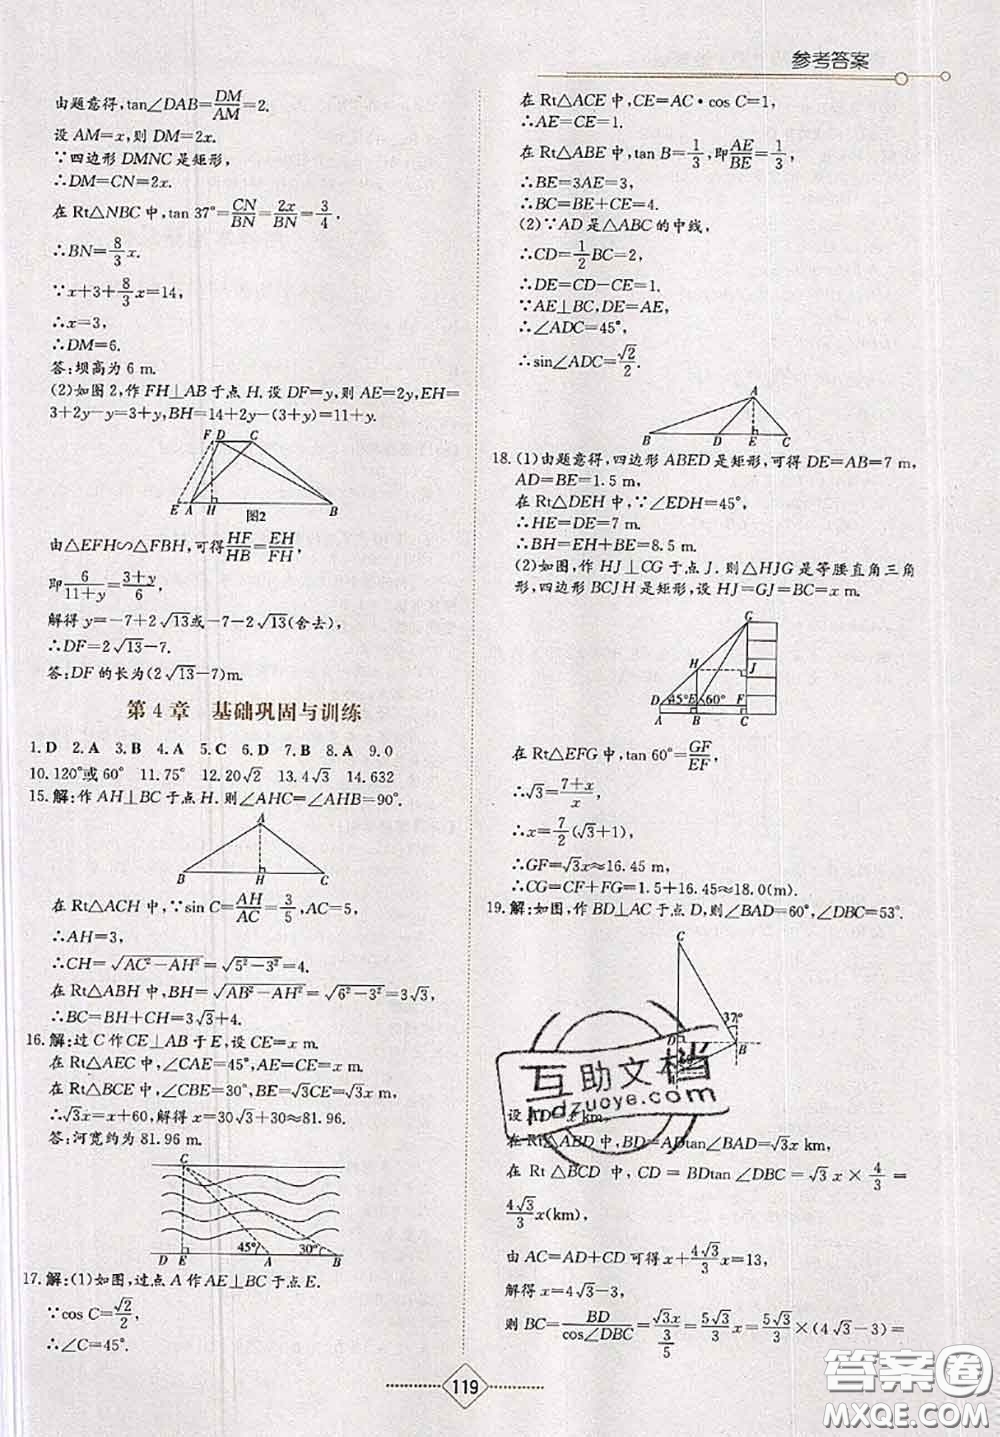 参考答案
由题意得,tan∠DAB=DM/AM=2.
设 AM=x,则 DM=2x.
∵四边形 DMNC 是矩形,
∴DM=CN=2x.
在 Rt△NBC 中,tan 37°=CN/BN=2x/BN=3/4,
∴BN=8/3x.
∵x+3+8/3x=14,
∴x=3,
∴DM=6.
答:坝高为 6 m.
(2)如图 2,作 FH⊥AB 于点 H.设 DF=y,则 AE=2y,EH=
3+2y-y=3+y,BH=14+2y-(3+y)=11+y.
F D C
E A H B
图2
由△EFH∽△FBH,可得HF/HB=EH/FH,
即6/(11+y)=(3+y)/6,
解得 y=-7+2√13或-7-2√13(舍去),
∴DF=2√13-7.
答:DF 的长为(2√13-7)m.
第 4 章 基础巩固与训练
1.D 2.A 3.B 4.A 5.C 6.D 7.B 8.A 9.0
10.120°或 60° 11.75° 12.20√2 13.4√3 14.632
15.解:作 AH⊥BC 于点 H.则∠AHC=∠AHB=90°.
A
B H C
在 Rt△ACH 中,∵sin C=AH/AC=3/5,AC=5,
∴AH=3,
∴CH=√(AC²-AH²)=√(5²-3²)=4.
在 Rt△ABH 中,BH=√(AB²-AH²)=√(6²-3²)=3√3,
∴BC=BH+CH=3√3+4.
16.解:过 C 作 CE⊥AB 于 E,设 CE=x m.
在 Rt△AEC 中,∠CAE=45°,AE=x m.
在 Rt△BCE 中,∠CBE=30°,BE=√3CE=√3x m.
∴√3x=x+60,解得 x=30√3+30≈81.96.
答:河宽约为 81.96 m.
C
45° 30°
D E A B
17.解:(1)如图,过点 A 作 AE⊥BC 于点 E.
∵cos C=√2/2,
∴∠C=45°.
在 Rt△ACE 中,CE=AC·cos C=1,
∴AE=CE=1.
在 Rt△ABE 中,tan B=1/3,即AE/BE=1/3,
∴BE=3AE=3,
∴BC=BE+CE=4.
(2)∵AD 是△ABC 的中线,
∴CD=1/2BC=2,
∴DE=CD-CE=1.
∵AE⊥BC,DE=AE,
∴∠ADC=45°,
∴sin∠ADC=√2/2.
A
B D E C
18.(1)由题意得,四边形 ABED 是矩形,可得 DE=AB=7 m,
AD=BE=1.5 m.
在 Rt△DEH 中,∵∠EDH=45°,
∴HE=DE=7 m.
∴BH=EH+BE=8.5 m.
(2)如图,作 HJ⊥CG 于点 J.则△HJG 是等腰直角三角
形,四边形 BCJH 是矩形,设 HJ=GJ=BC=x m.
G
H J
D 45° E 60° F
A B C
在 Rt△EFG 中,tan 60°=GF/EF,
∴√3=(7+x)/x,
∴x=7/2(√3+1),
∴GF=√3x≈16.45 m,
∴CG=CF+FG=1.5+16.45≈18.0(m).
19.解:如图,作 BD⊥AC 于点 D,则∠BAD=60°,∠DBC=53°.
C
37°
D B
互助文档
hdzuoye.com
设 AD=x km,
在 Rt△ABD 中,BD=ADtan∠BAD=√3x km,
在 Rt△BCD 中,CD=BDtan∠DBC=√3x×4/3=
4√3/3x(km),
由 AC=AD+CD 可得 x+4√3/3x=13,
解得 x=4√3-3,
则 BC=BD/cos∠DBC=√3x/(3/5)=5√3/3x=5√3/3×(4√3-3)=
119
答案圈
MXQE.COM